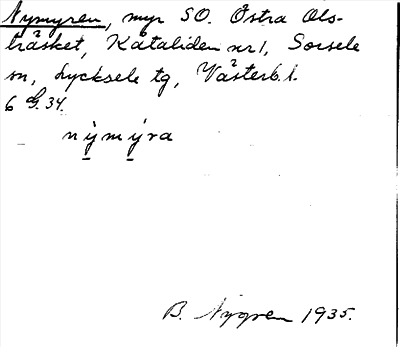 Nymyren, myr SO. Östra Ols-
träsket, Kåtaliden nr 1, Sorsele
sn, Lycksele tg, Västerb. l.
6 G. 34.
nýmýra
B. Nygren 1935.